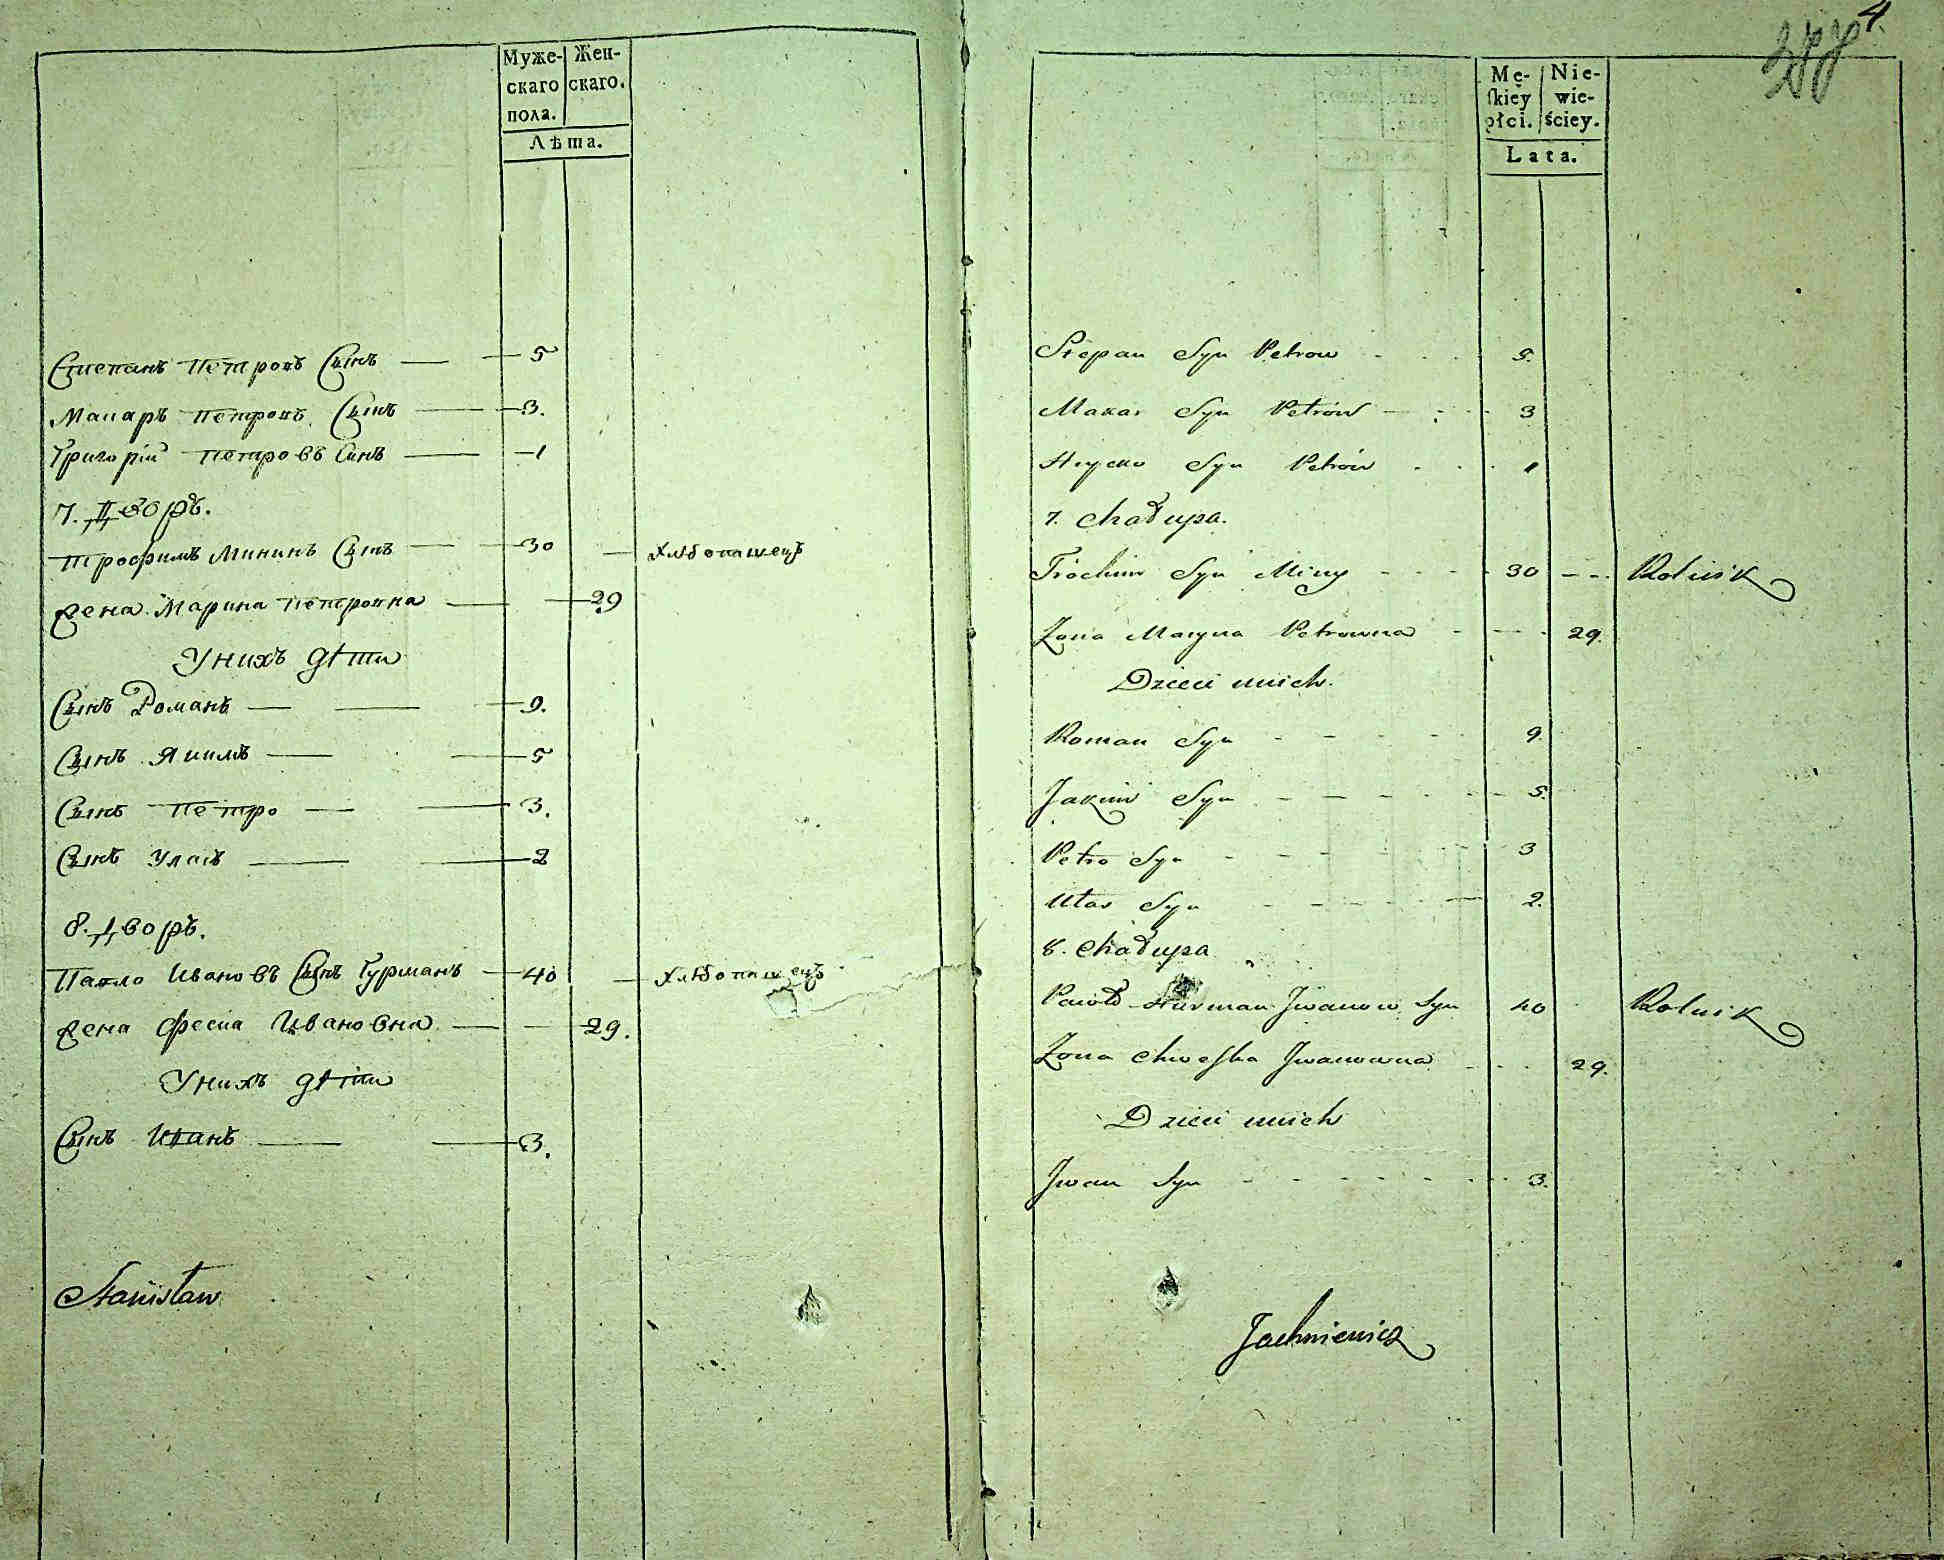 Муже- Жен-
скаго скаго.
пола.
Лѣта.
Степанъ Петровъ Сынъ — — 5
Макаръ Петровъ Сынъ — — 3.
Григорій Петровъ Сынъ — — 1
7. Дворъ.
Трофимъ Мининъ Сынъ — — 30 — Хлѣбопашецъ
Жена Марина Петровна — — 29
У нихъ дѣти
Сынъ Романъ — — — 9.
Сынъ Якимъ — — 5
Сынъ Петро — — 3.
Сынъ Уласъ — — 2
8. Дворъ.
Павло Ивановъ Сынъ Гурманъ — 40 — Хлѣбопашецъ
Жена Феска Ивановна — — 29.
У нихъ дѣти
Сынъ Иванъ — — 3.
Stanisław
4.
Mę- Nie-
skiey wie-
płci. ściey.
Lata.
Stepan Syn Petrow 5.
Makar Syn Petrów 3
Hrycko Syn Petrów 1
7. Chałupa.
Trochim Syn Miny 30 Rolnik
Żona Maryna Petrowna 29.
Dzieci unich.
Roman Syn 9
Jakim Syn 5.
Petro Syn 3
Ułas Syn 2.
8. Chałupa
Pawło Hurman Jwanow Syn 40 Rolnik
Żona Chweska Jwanowna 29.
Dzieci unich
Jwan Syn 3.
Jachniewicz